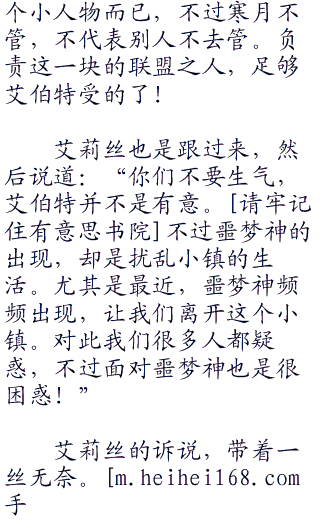 个小人物而已，不过寒月不
管，不代表别人不去管。负
责这一块的联盟之人，足够
艾伯特受的了！
艾莉丝也是跟过来，然
后说道：“你们不要生气，
艾伯特并不是有意。[请牢记
住有意思书院]不过噩梦神的
出现，却是扰乱小镇的生
活。尤其是最近，噩梦神频
频出现，让我们离开这个小
镇。对此我们很多人都疑
惑，不过面对噩梦神也是很
困惑！”
艾莉丝的诉说，带着一
丝无奈。[m.heihei168.com
手